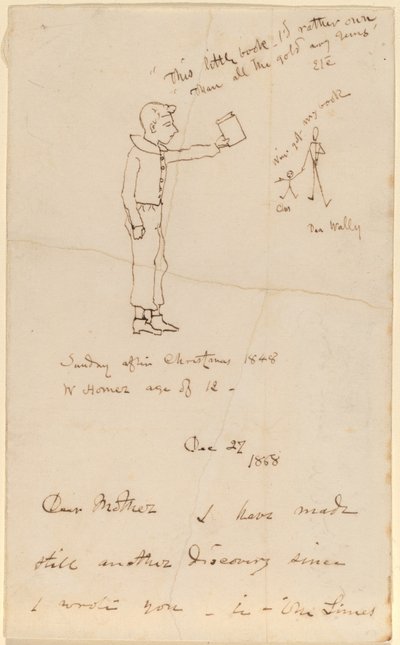 "This little book - I'd rather own
"Than all the gold any Gems"
Etc
Now got my book
Chas
Dan Wally
Sunday after Christmas 1848
W Homer age of 12 -
Dec 27
1888
Dear Mother I have made
still another discovery since
I wrote you - in - The Times